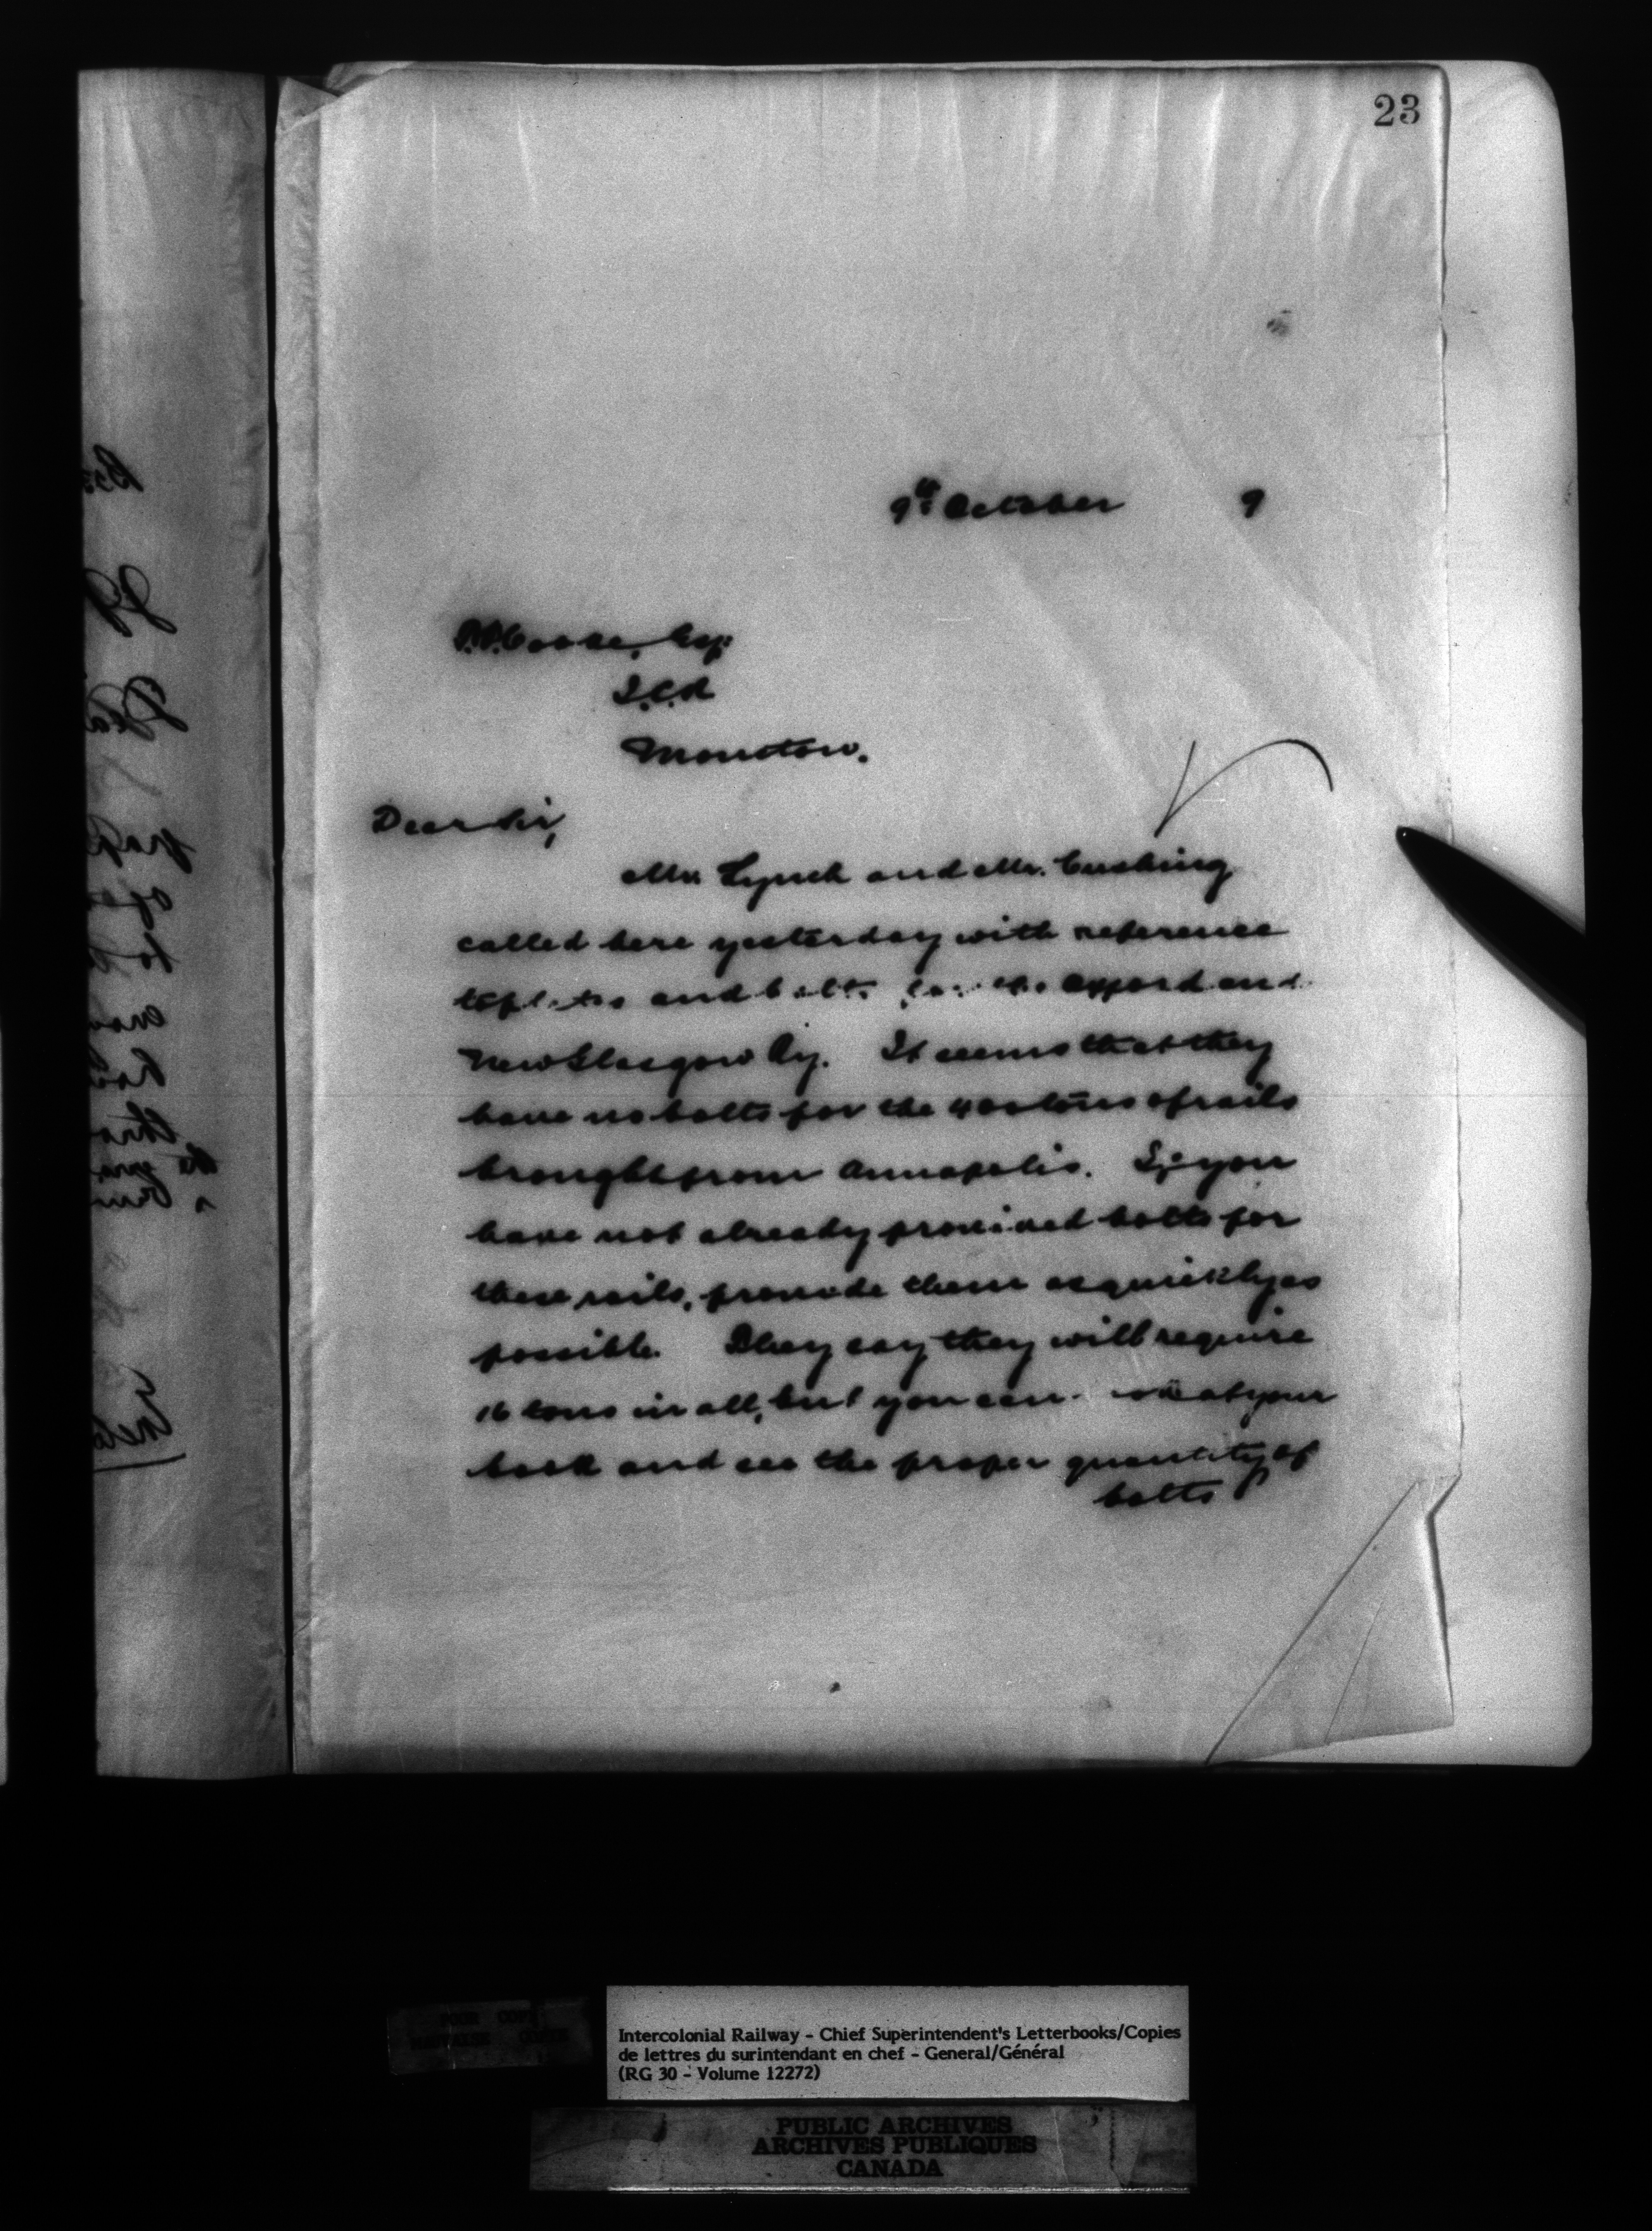 23
9th October 9
Cooke, Esq:
I.C.R
Moncton.
Dear Sir,
Mr. Lynch and Mr. Cushing
called here yesterday with reference
to plates and bolts for the Oxford and
New Glasgow Ry. It seems that they
have no bolts for the 400 tons of rails
brought from Annapolis. If you
have not already provided bolts for
these rails, provide them as quickly as
possible. They say they will require
16 tons in all, but you can at your
book and see the proper quantity of
bolts
Intercolonial Railway - Chief Superintendent's Letterbooks/Copies
de lettres du surintendant en chef - General/Général
(RG 30 - Volume 12272)
PUBLIC ARCHIVES
ARCHIVES PUBLIQUES
CANADA